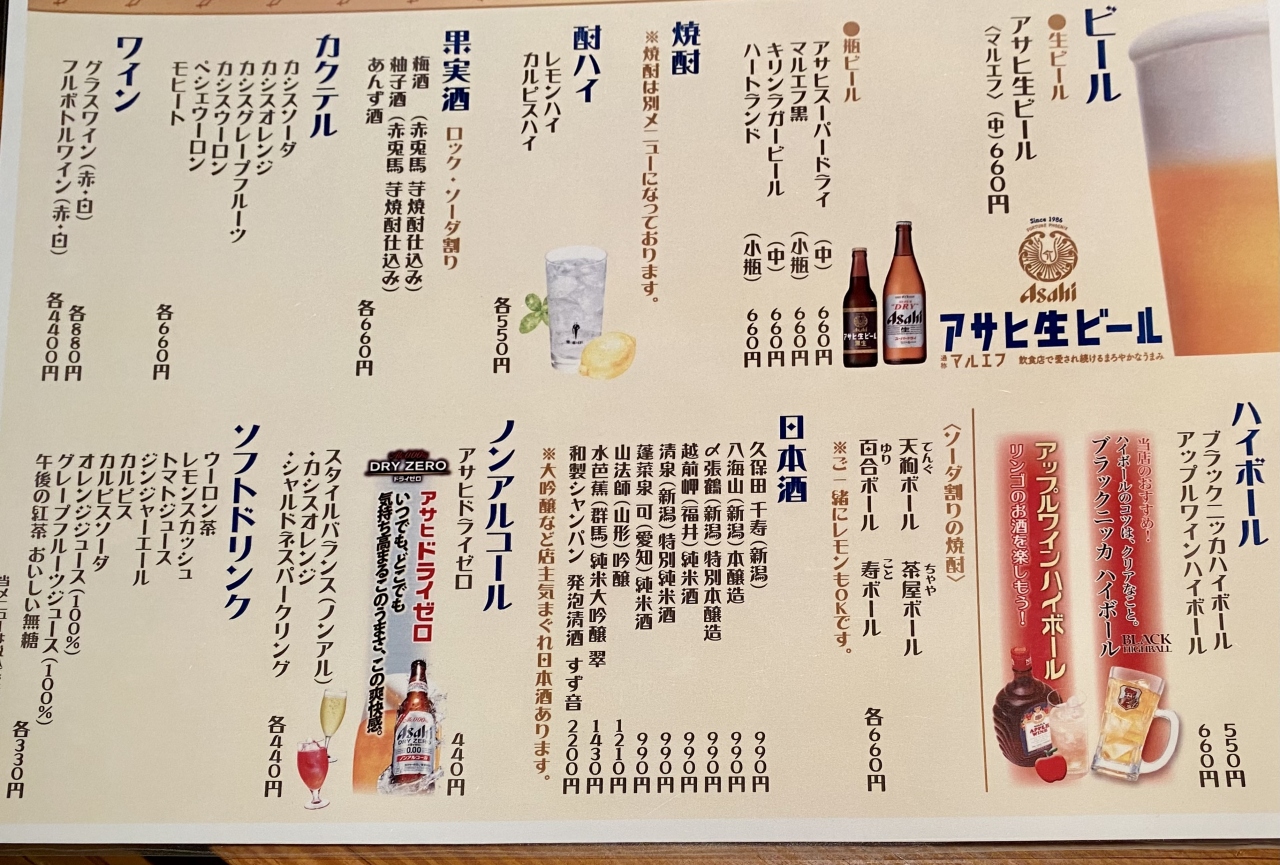 ビール
●生ビール
アサヒ生ビール
〈マルエフ〉(中)660円
Since 1986
FORTUNE PHOENIX
Asahi
アサヒ生ビール
通称 マルエフ 飲食店で愛され続けるまろやかなうまみ
●瓶ビール
アサヒスーパードライ (中) 660円
マルエフ黒 (小瓶) 660円
キリンラガービール (中) 660円
ハートランド (小瓶) 660円
焼酎
※焼酎は別メニューになっております。
酎ハイ
レモンハイ
カルピスハイ
各550円
果実酒 ロック・ソーダ割り
梅酒 (赤兎馬 芋焼酎仕込み)
柚子酒 (赤兎馬 芋焼酎仕込み)
あんず酒
各660円
カクテル
カシスソーダ
カシスオレンジ
カシスグレープフルーツ
カシスウーロン
ペシェウーロン
モヒート
各660円
ワイン
グラスワイン(赤・白) 各880円
フルボトルワイン(赤・白) 各4400円
ハイボール
ブラックニッカハイボール 550円
アップルワインハイボール 660円
当店のおすすめ!
ハイボールのコツは、クリアなこと。
ブラックニッカ ハイボール
BLACK
HIGHBALL
アップルワインハイボール
リンゴのお酒を楽しもう!
〈ソーダ割りの焼酎〉
天狗ボール 茶屋ボール
てんぐ ちやや
百合ボール 寿ボール
ゆり こと
各660円
※ご一緒にレモンもOKです。
日本酒
久保田 千寿(新潟) 990円
八海山(新潟)本醸造 990円
〆張鶴(新潟)特別本醸造 990円
越前岬(福井)純米酒 990円
清泉(新潟)特別純米酒 990円
蓬莱泉 可(愛知)純米酒 990円
山法師(山形)吟醸 1210円
水芭蕉(群馬)純米大吟醸 翠 1430円
和製シャンパン 発泡清酒 すず音 2200円
※大吟醸など店主気まぐれ日本酒あります。
ノンアルコール
アサヒドライゼロ 440円
DRY ZERO
ドライゼロ
アサヒドライゼロ
いつでも、どこでも
気持ち高まるこのうまさ、この爽快感。
Asahi
DRY ZERO
0.00
スタイルバランス(ノンアル)
・カシスオレンジ
・シャルドネスパークリング
各440円
ソフトドリンク
ウーロン茶
レモンスカッシュ
トマトジュース
ジンジャーエール
カルピス
カルピスソーダ
オレンジジュース(100%)
グレープフルーツジュース(100%)
午後の紅茶 おいしい無糖
各330円